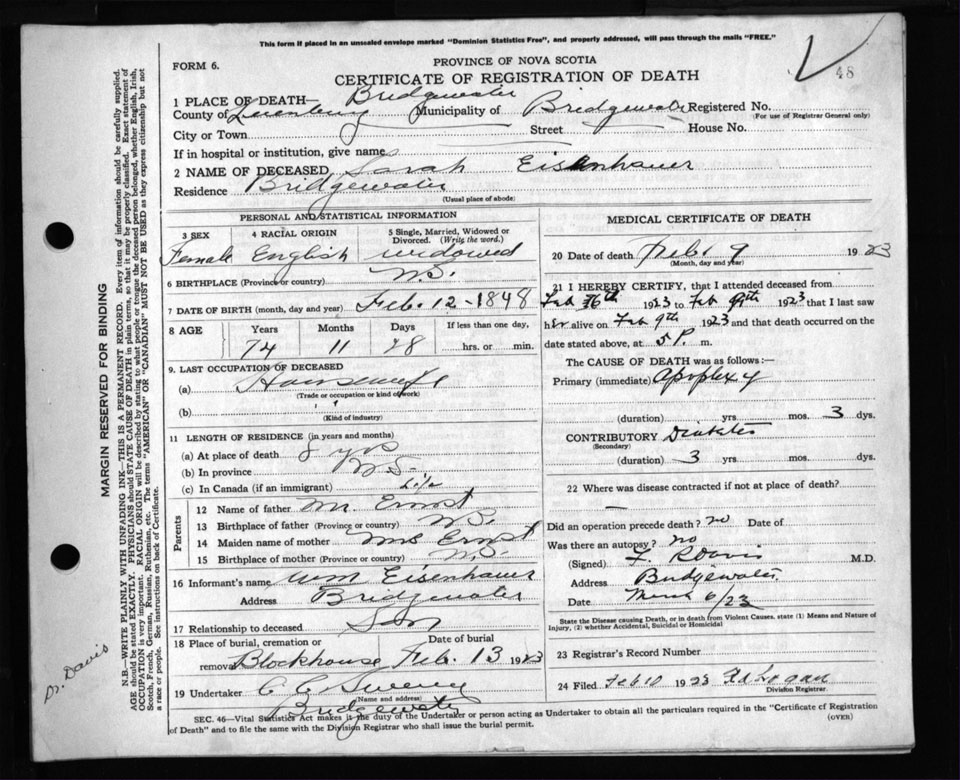 This form if placed in an unsealed envelope marked "Dominion Statistics Free", and properly addressed, will pass through the mails "FREE."
FORM 6.
PROVINCE OF NOVA SCOTIA
48
CERTIFICATE OF REGISTRATION OF DEATH
1 PLACE OF DEATH— Bridgewater
County of Lunenburg Municipality of Bridgewater Registered No.
(For use of Registrar General only)
City or Town Street House No.
If in hospital or institution, give name
2 NAME OF DECEASED Sarah Eisenhauer
Residence Bridgewater
(Usual place of abode)
PERSONAL AND STATISTICAL INFORMATION
3 SEX 4 RACIAL ORIGIN 5 Single, Married, Widowed or Divorced. (Write the word.)
Female English widowed
6 BIRTHPLACE (Province or Country) N.S.
7 DATE OF BIRTH (month, day and year) Feb. 12-1848
8 AGE Years Months Days If less than one day,
74 11 28 hrs. or min.
9. LAST OCCUPATION OF DECEASED
(a) Housewife
(Trade or occupation or kind of work)
(b) " "
(Kind of industry)
11 LENGTH OF RESIDENCE (in years and months)
(a) At place of death yrs
(b) In province N.S.
(c) In Canada (if an immigrant) Life
Parents
12 Name of father Mr. Ernst
13 Birthplace of father (Province or country) N.S.
14 Maiden name of mother Mrs Ernst
15 Birthplace of mother (Province or country) N.S.
16 Informant's name Wm Eisenhauer
Address Bridgewater
17 Relationship to deceased Son
18 Place of burial, cremation or removal Blockhouse Date of burial Feb. 13 1923
19 Undertaker C. C. Sweeny
(Name and address)
Bridgewater
MEDICAL CERTIFICATE OF DEATH
20 Date of death Feb 9 1923
(Month, day and year)
21 I HEREBY CERTIFY, that I attended deceased from
Feb 6th 1923 to Feb 9th 1923 that I last saw
her alive on Feb 9th 1923 and that death occurred on the
date stated above, at 5 P. m.
The CAUSE OF DEATH was as follows:—
Primary (immediate) Apoplexy
(duration) yrs. mos. 3 dys.
CONTRIBUTORY Diabetes
(Secondary)
(duration) 3 yrs. mos. dys.
22 Where was disease contracted if not at place of death?
Did an operation precede death? no Date of
Was there an autopsy? no
(Signed) F R Davis M.D.
Address Bridgewater
Date March 6/23
State the Disease causing Death, or in death from Violent Causes, state (1) Means and Nature of
Injury, (2) whether Accidental, Suicidal or Homicidal
23 Registrar's Record Number
24 Filed Feb 10 1923 Logan
Division Registrar
SEC. 46—Vital Statistics Act makes it the duty of the Undertaker or person acting as Undertaker to obtain all the particulars required in the "Certificate of Registration
of Death" and to file the same with the Division Registrar who shall issue the burial permit.
(OVER)
MARGIN RESERVED FOR BINDING
N.B.—WRITE PLAINLY WITH UNFADING INK—THIS IS A PERMANENT RECORD. Every item of information should be carefully supplied.
AGE should be stated EXACTLY. PHYSICIANS should STATE CAUSE OF DEATH in plain terms, so that it may be properly classified. Exact statement of
OCCUPATION is very important. RACIAL ORIGIN will be described by stating to what people or tongue the deceased person belonged, whether English, Irish,
Scotch, French, German, Russian, Ruthenian, etc. The terms "AMERICAN" OR "CANADIAN" MUST NOT BE USED as they express citizenship but not
a race or people. See instructions on back of Certificate.
Dr. Davis